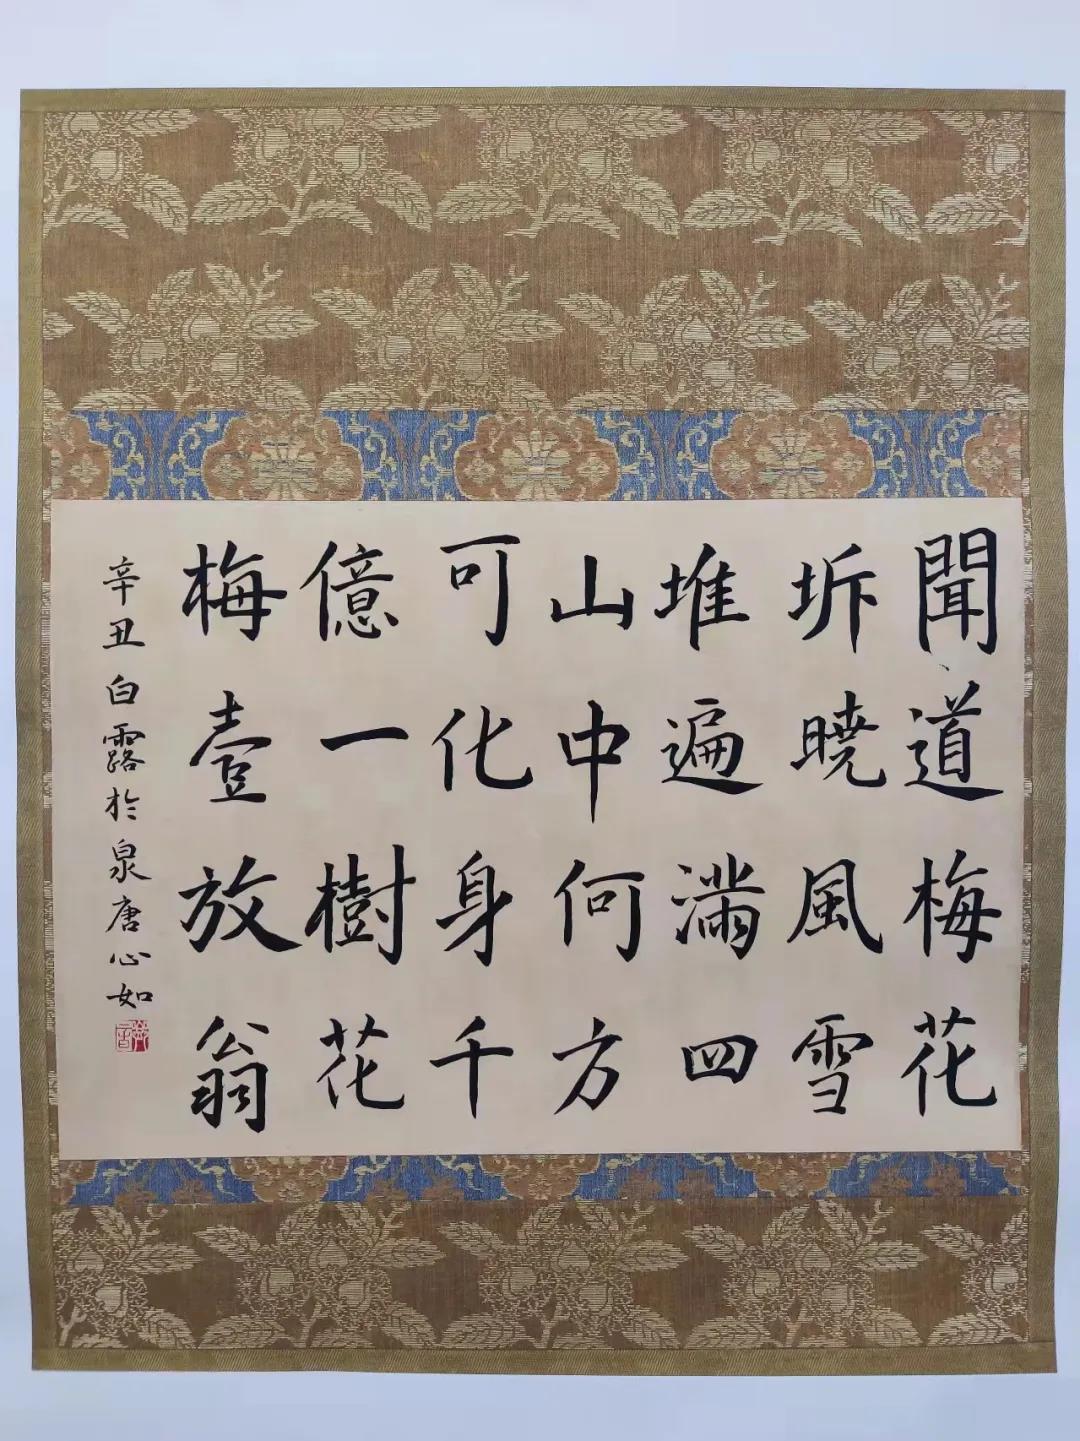 聞道梅花
坼暁風雪
堆遍滿四
山中何方
可化身千
億一樹花
梅壹放翁
辛丑白露於泉唐心如